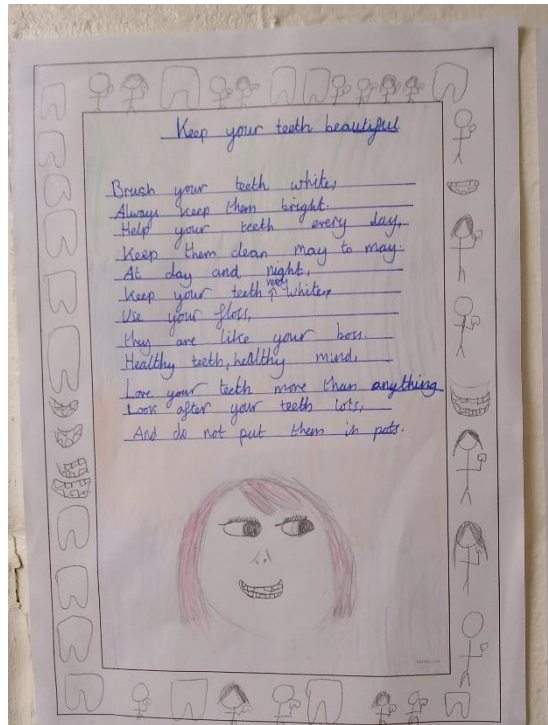 Keep your teeth beautiful
Brush your teeth white,
Always keep them bright.
Help your teeth every day,
Keep them clean may to may.
At day and night,
Keep your teeth very white,
Use your floss,
they are like your boss.
Healthy teeth, healthy mind,
Love your teeth more than anything
Look after your teeth lots,
And do not put them in pots.